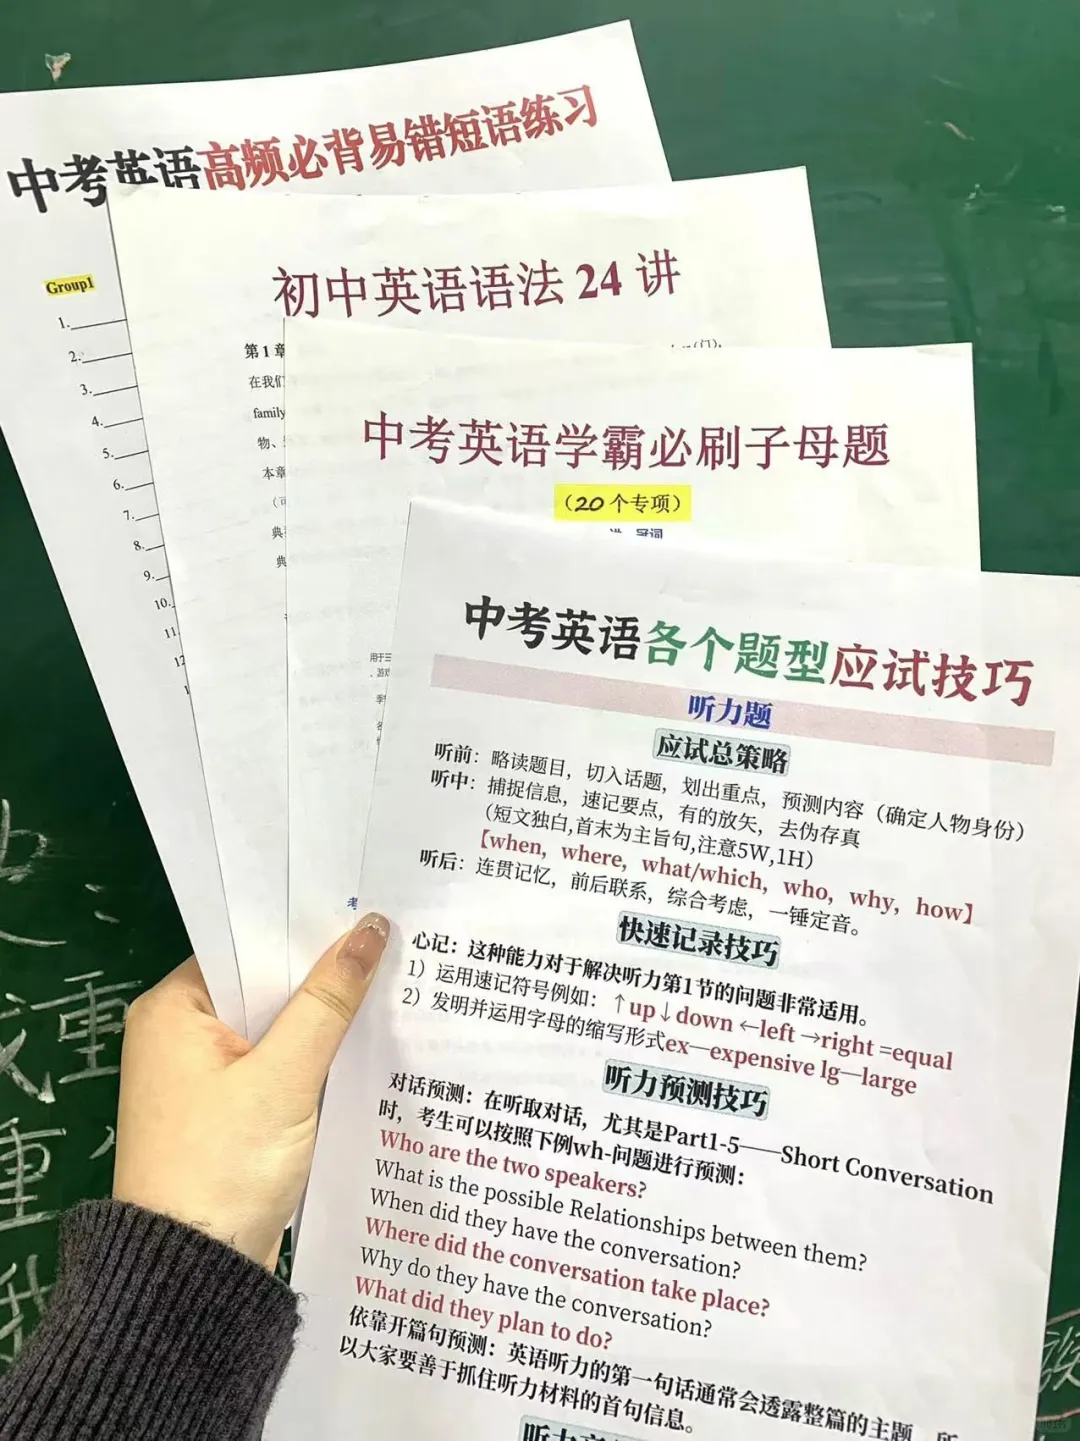 中考英语高频必背易错短语练习
Group1
1.
2.
3.
4.
5.
6.
7.
8.
9.
10.
11
12
1
初中英语语法 24 讲
第 1 章
在我们
family
物、
本章
（可
典
典
中考英语学霸必刷子母题
（20 个专项）
冠词
用于三
考
中考英语各个题型应试技巧
听力题
应试总策略
听前：略读题目，切入话题，划出重点，预测内容（确定人物身份）
听中：捕捉信息，速记要点，有的放矢，去伪存真
（短文独白,首末为主旨句,注意5W,1H）
【when，where，what/which，who，why，how】
听后：连贯记忆，前后联系，综合考虑，一锤定音。
快速记录技巧
心记：这种能力对于解决听力第1节的问题非常适用。
1）运用速记符号例如：↑up↓down ←left →right =equal
2）发明并运用字母的缩写形式ex—expensive lg—large
听力预测技巧
对话预测：在听取对话，尤其是Part1-5——Short Conversation
时，考生可以按照下例wh-问题进行预测：
Who are the two speakers?
What is the possible Relationships between them?
When did they have the conversation?
Where did the conversation take place?
Why do they have the conversation?
What did they plan to do?
依靠开篇句预测：英语听力的第一句话通常会透露整篇的主题，所
以大家要善于抓住听力材料的首句信息。
重
重